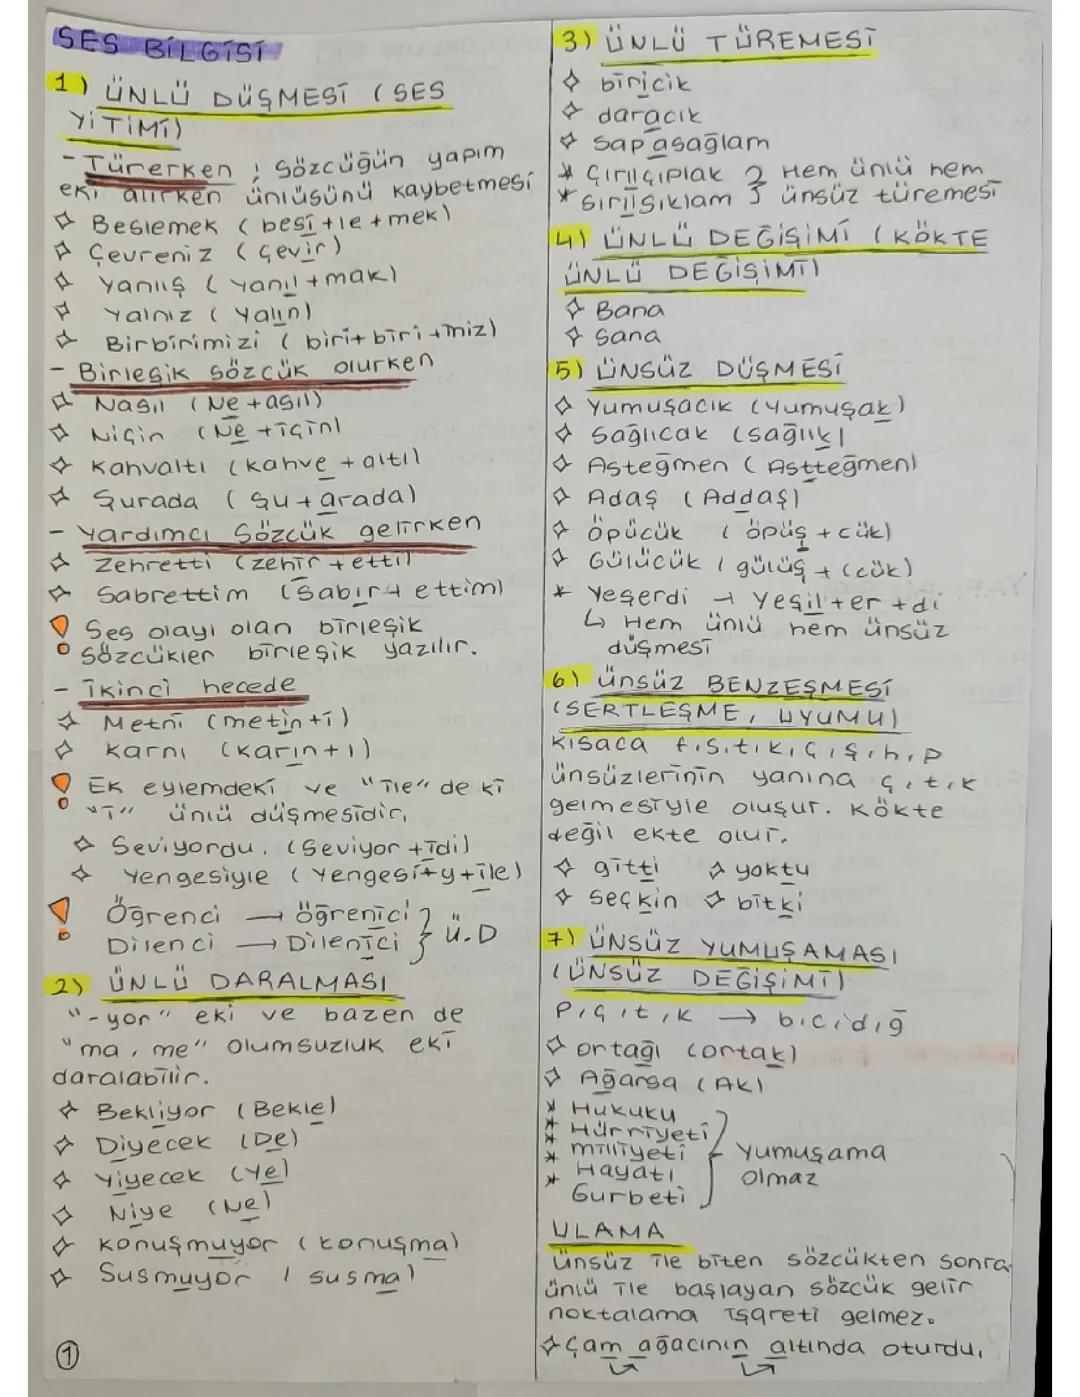 SES BİLGİSİ
1) ÜNLÜ DÜŞMESİ (SES
YİTİMİ)
- Türerken ; Sözcüğün yapım
eki alırken ünlüsünü kaybetmesi
✧ Beslemek (besi+le+mek)
✧ Çevreniz (çevir)
✧ Yanlış (yanıl+mak)
✧ Yalnız (yalın)
✧ Birbirimizi (biri+biri+miz)
- Birleşik sözcük olurken
✧ Nasıl (Ne+asıl)
✧ Niçin (Ne+için)
✧ Kahvaltı (kahve+altı)
✧ Şurada (Şu+arada)
- Yardımcı Sözcük gelirken
✧ Zehretti (zehir+etti)
✧ Sabrettim (Sabır+ettim)
! Ses olayı olan birleşik
sözcükler birleşik yazılır.
- İkinci hecede
✧ Metni (metin+i)
✧ Karnı (karın+ı)
! Ek eylemdeki ve "ile" de ki
"i" ünlü düşmesidir.
✧ Seviyordu. (Seviyor+idi)
✧ Yengesiyle (Yengesi+y+ile)
! Öğrenci → öğrenici } Ü.D
Dilenci → Dilenici
2) ÜNLÜ DARALMASI
"-yor" eki ve bazen de
"ma, me" olumsuzluk eki
daralabilir.
✧ Bekliyor (Bekle)
✧ Diyecek (De)
✧ Yiyecek (Ye)
✧ Niye (Ne)
✧ Konuşmuyor (konuşma)
✧ Susmuyor (susma)
1
3) ÜNLÜ TÜREMESİ
✧ biricik
✧ daracık
✧ sapasağlam
* Çırılçıplak } Hem ünlü hem
* sırılsıklam ünsüz türemesi
4) ÜNLÜ DEĞİŞİMİ (KÖKTE
ÜNLÜ DEĞİŞİMİ)
✧ Bana
✧ Sana
5) ÜNSÜZ DÜŞMESİ
✧ Yumuşacık (Yumuşak)
✧ Sağlıcak (sağlık)
✧ Asteğmen (Astteğmen)
✧ Adaş (Addaş)
✧ Öpücük (öpüş+cük)
✧ Gülücük (gülüş+(cük)
* Yeşerdi → Yeşil+er+di
↳ Hem ünlü hem ünsüz
düşmesi
6) ünsüz BENZEŞMESİ
(SERTLEŞME, UYUMU)
Kısaca f,s,t,k,ç,ş,h,p
ünsüzlerinin yanına ç,t,k
gelmesiyle oluşur. Kökte
değil ekte olur.
✧ gitti ✧ yoktu
✧ seçkin ✧ bitki
7) ÜNSÜZ YUMUŞAMASI
(ÜNSÜZ DEĞİŞİMİ)
P,ç,t,k → b,c,d,ğ
✧ ortağı (ortak)
✧ Ağarsa (Ak)
* Hukuku
* Hürriyeti
* milliyeti } Yumuşama
* Hayatı olmaz
Gurbeti
ULAMA
Ünsüz ile biten sözcükten sonra
ünlü ile başlayan sözcük gelir
noktalama işareti gelmez.
✧ Çam ağacının altında oturdu.